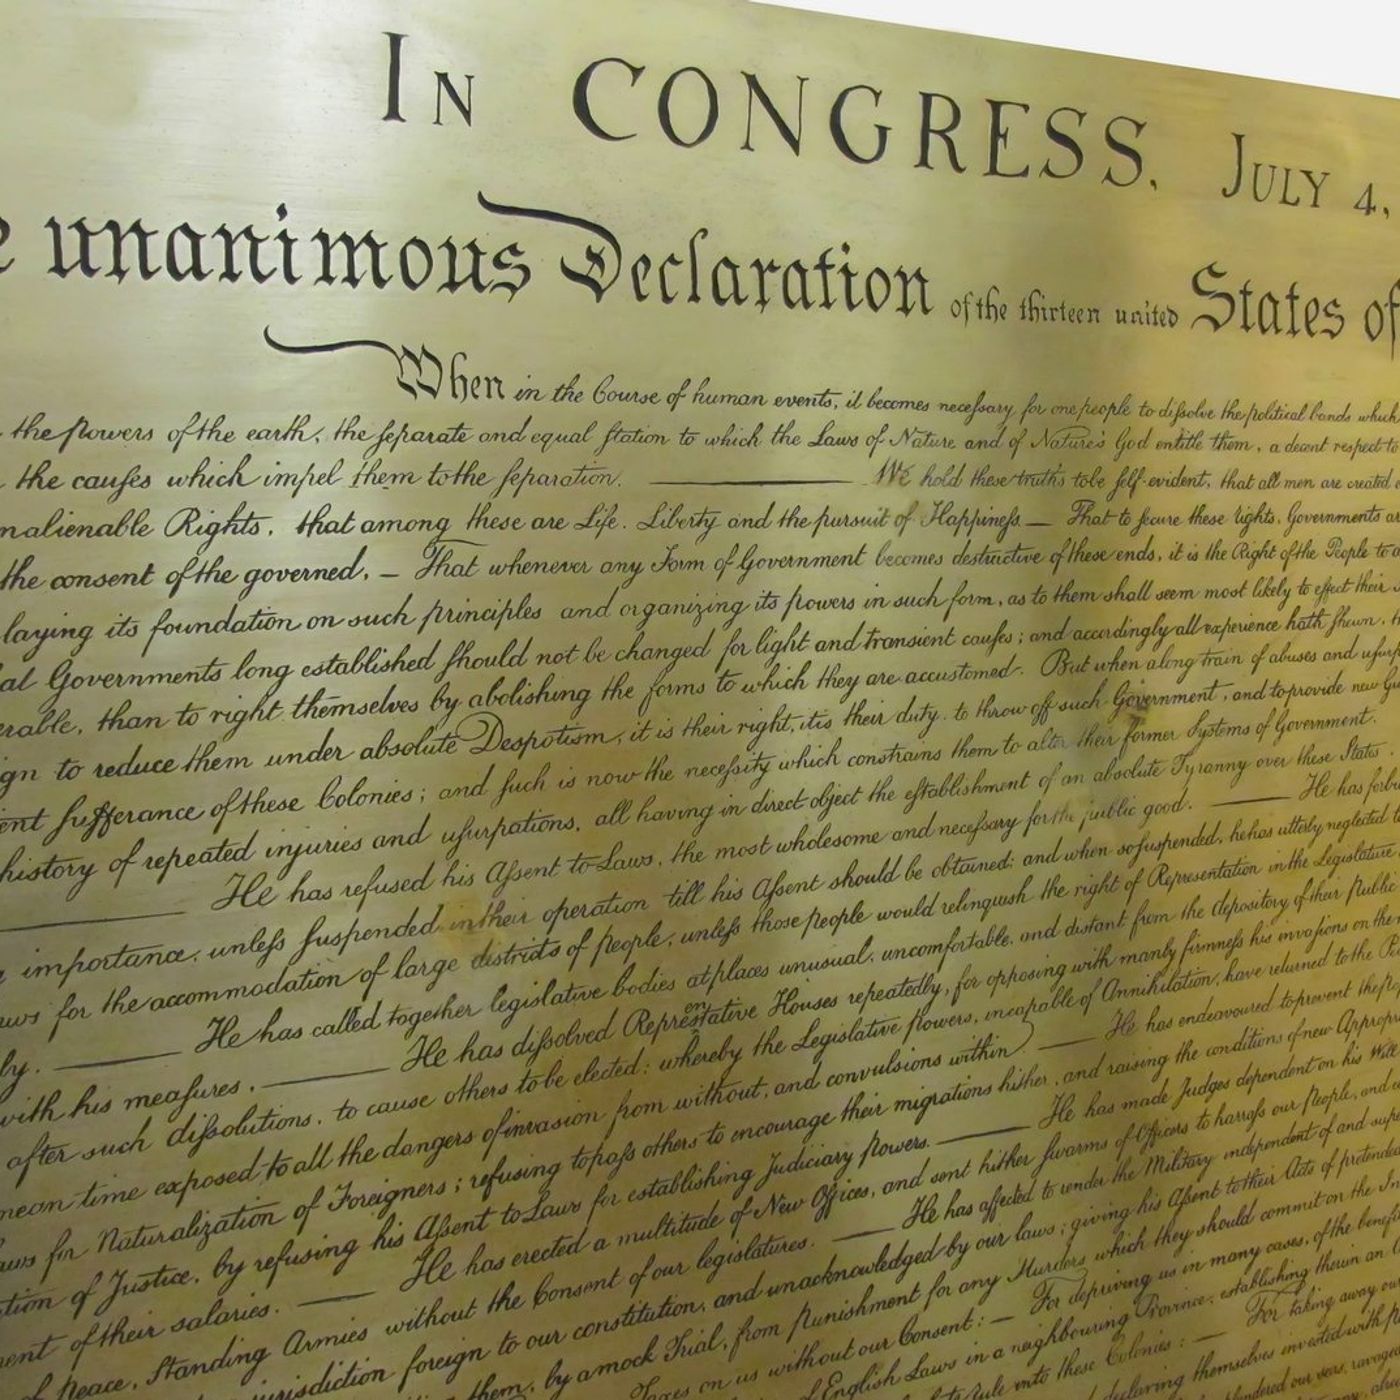 IN CONGRESS, JULY 4,
unanimous Declaration of the thirteen united States of
When in the Course of human events, it becomes neceſsary for one people to diſsolve the political bands which
the powers of the earth, the ſeparate and equal ſtation to which the Laws of Nature and of Nature's God entitle them, a decent respect to
the cauſes which impel them to the ſeparation. We hold these truths to be ſelf-evident, that all men are created
nalienable Rights, that among these are Life, Liberty and the pursuit of Happineſs. — That to ſecure these rights, Governments ar
the consent of the governed, — That whenever any Form of Government becomes destructive of these ends, it is the Right of the People to a
laying its foundation on such principles and organizing its powers in such form, as to them shall seem most likely to effect their
al Governments long established ſhould not be changed for light and transient cauſes; and accordingly all experience hath ſhewn,
erable, than to right themselves by abolishing the forms to which they are accustomed. But when a long train of abuses and uſurp
ign to reduce them under absolute Despotism, it is their right, it is their duty, to throw off such Government, and to provide new Gu
ent ſufferance of these Colonies; and ſuch is now the neceſsity which constrains them to alter their former Systems of Government.
history of repeated injuries and uſurpations, all having in direct object the eſtablishment of an absolute Tyranny over these States.
He has refused his Aſsent to Laws, the most wholesome and neceſsary for the public good. — He has forbid
importance, unleſs ſuspended in their operation till his Aſsent should be obtained; and when so ſuspended, he has utterly neglected t
aws for the accommodation of large districts of people, unleſs those people would relinquish the right of Representation in the Legislature,
ly. — He has called together legislative bodies at places unusual, uncomfortable, and distant from the depository of their Public
with his meaſures. — He has diſsolved Represtative en Houses repeatedly, for opposing with manly firmneſs his invaſions on the
after such diſsolutions, to cause others to be elected; whereby the Legislative powers, incapable of Annihilation, have returned to the Pe
mean time exposed to all the dangers of invasion from without, and convulsions within. — He has endeavoured to prevent the po
aws for Naturalization of Foreigners; refusing to paſs others to encourage their migrations hither, and raising the conditions of new Appropri
tion of Justice, by refusing his Aſsent to Laws for establishing Judiciary powers. — He has made Judges dependent on his Will
ent of their salaries. — He has erected a multitude of New Offices, and sent hither ſwarms of Officers to harraſs our people, and
Peace, Standing Armies without the Consent of our legislatures. — He has affected to render the Military independent of and supe
jurisdiction foreign to our constitution, and unacknowledged by our laws; giving his Aſsent to their Acts of pretended
them, by a mock Trial, from punishment for any Murders which they should commit on the In
Taxes on us without our Consent: — For depriving us in many cases, of the benefi
of English Laws in a neighbouring Province, establishing therein an
rule into these Colonies: — For taking away our
declaring themselves invested with p
plundered our seas, ravaged